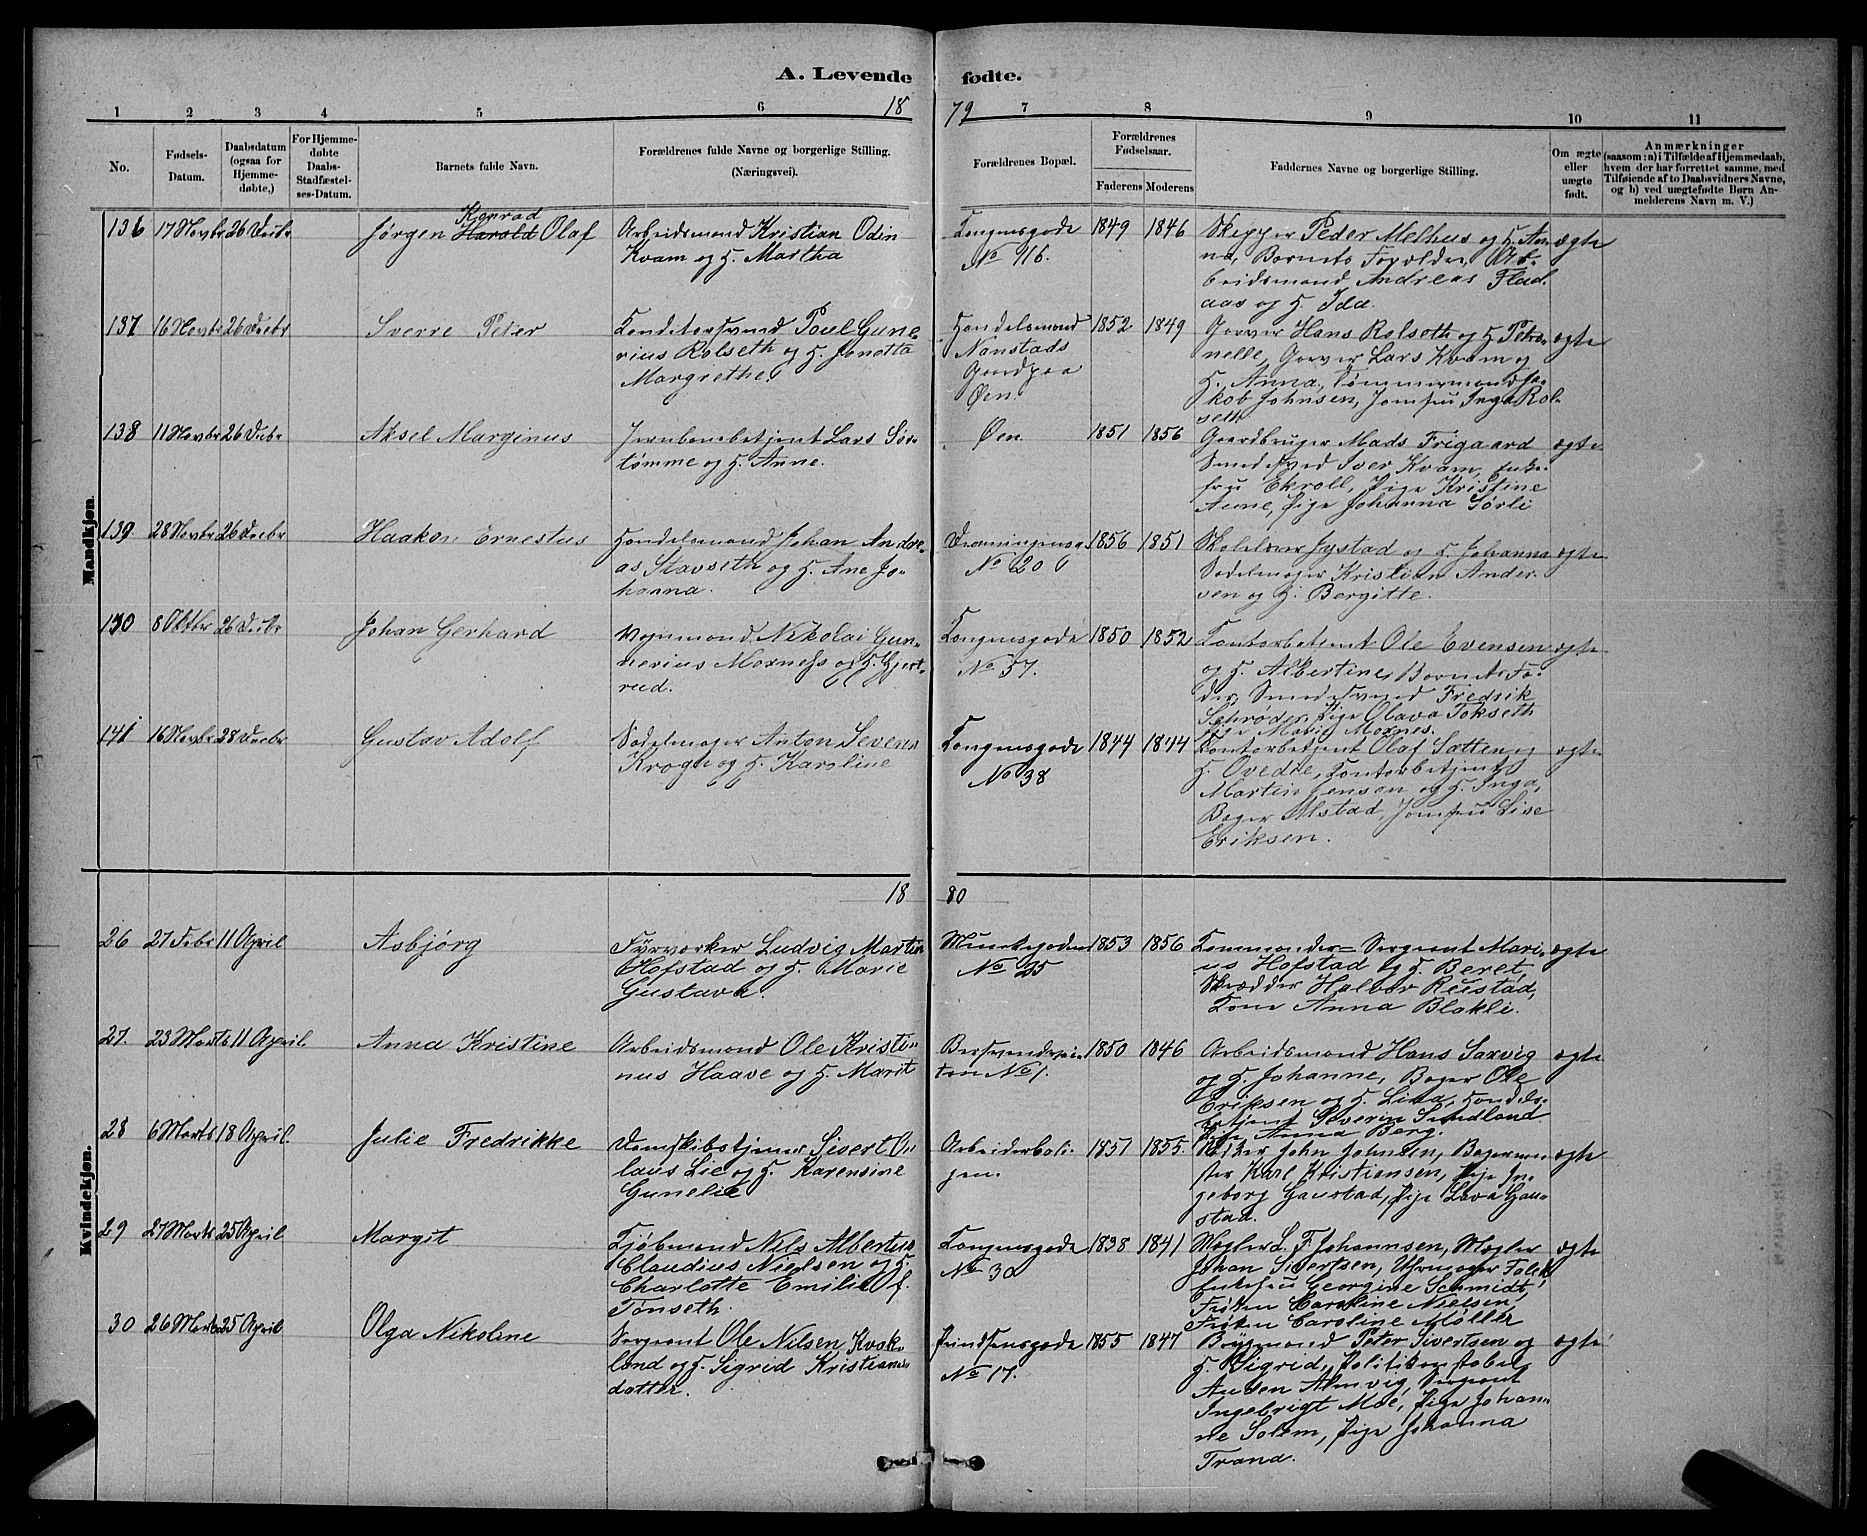 A. Levende fødte.
1 2 3 4 5 6 18 79 7 8 9 10 11
No.
Fødsels-
Datum.
Daabsdatum
(ogsaa for
Hjemme-
døbte,)
For Hjemme-
døbte
Daabs-
Stadfæstel-
ses-Datum.
Barnets fulde Navn.
Forældrenes fulde Navne og borgerlige Stilling.
(Næringsvei).
Forældrenes Bopæl.
Forældrenes
Fødselsaar.
Faderens Moderens
Faddernes Navne og borgerlige Stilling.
Om ægte
eller
uægte
født.
Anmærkninger
(saasom: a) i Tilfælde af Hjemmedaab,
hvem der har forrettet samme, med
Tilføiende af to Daabsvidners Navne,
og b) ved uægtefødte Børn An-
melderens Navn m. V.)
Mandkjøn.
136 17 Novbr 26 Decbr
Konrad
Jørgen Harold Olaf
Arbeidsmand Kristian Odin
Kvam og H. Martha
Kongensgade
No 96.
1849 1846
Skipper Peder Melhus og H. An-
na, Barnets Forældre, Ar-
beidsmand Andreas Flad-
aas og H. Ida.
ægte
137 16 Novbr 26 Decbr
Sverre Peter
Konditorsvend Poul Gune-
rius Rolseth og H. Jonetta
Margrethe.
Handelsmand
Nanstads
Gaard paa
Øen.
1852 1849
Garver Hans Rolseth og H. Petro-
nelle, Garver Lars Kvam og
H. Anna, Tømmermand Ja-
kob Johnsen, Jomfru Inga Rol-
seth
ægte
138 11 Novbr 26 Decbr
Aksel Marginus
Jernbanebetjent Lars Sør-
tømme og H. Anne.
Øen.
1851 1856
Gaardbruger Mads Frigaard
Smedesvend Iver Kvam, Enke-
fru Ekroll, Pige Kristine
Aune, Pige Johanna Sørli
ægte
139 28 Novbr 26 Decbr
Haakon Ernestus
Handelsmand Johan Andre-
as Stavseth og H. Ane Jo-
hanna.
Dronningensg.
No 20 b
1856 1851
Skolelærer Jystad og H. Johanna
Sadelmager Kristian Ander-
sen og H. Bergitte.
ægte
140 8 Oktbr 26 Decbr
Johan Gerhard
Vognmand Nikolai Gun-
nerius Moxness og H. Gjert-
rud.
Kongensgade
No 57.
1850 1852
Kontorbetjent Ole Evensen
og H. Albertine, Barnets Fa-
der, Smedesvend Fredrik
Schrøder, Pige Olava Tokseth
Pige Marie Moxnes.
ægte
141 16 Novbr 28 Decbr
Gustav Adolf
Sadelmager Anton Severin
Krogh og H. Karoline
Kongensgade
No 38
1844 1844
Kontorbetjent Olaf Sætten og
H. Ovedie, Kontorbetjent
Martin Jensen og H. Inga,
Bager Alstad, Jomfru Lise
Eriksen.
ægte
18 80
Kvindekjøn.
26 27 Febr 11 April
Asbjørg
Fyrværker Ludvig Martin
Hofstad og H. Marie
Gustava.
Munkegaden
No 25
1853 1856
Kommander-Sergeant Mari-
us Hofstad og H. Beret,
Skrædder Halvor Reestad,
Kone Anna Blakli.
ægte
27. 23 Marts 11 April.
Anna Kristine
Arbeidsmand Ole Kristi-
nus Haave og H. Marit
No 1.
1850 1846
Arbeidsmand Hans Saxvig
og H. Johanne, Bager Ole
Eriksen og H. Lina, Handels-
betjent Severin Sundland
Pige Anna Berg.
ægte
28 6 Marts 18 April.
Julie Fredrikke
Dampskibstjener Sivert O-
laus Lie og H. Karensine
Gunelie
Arbeiderboli-
gen.
1857 1855.
John Johnsen, Bagerme-
ster Karl Kristiansen, Pige In-
geborg Gaustad, Pige Lava Gau-
stad.
ægte
29 27 Marts 25 April
Margit
Kjøbmand Nils Albertus
Claudius Nielsen og H.
Charlotte Emilie f.
Tønseth.
Kongensgade
No 30
1838 1841
Mægler L. F. Johannsen, Mægler
Johan Sivertsen, Uhrmager Falck
Enkefru Georgine Schmidt,
Frøken Caroline Nielsen,
Frøken Caroline Møller
ægte
30 26 Marts 25 April
Olga Nikoline
Sergeant Ole Nilsen Kvak-
land og H. Sigrid Kristians-
datter.
Prindsensgade
No 17.
1855 1847
Brygmand Peter Sivertsen og
H. Sigrid, Politikonstabel
Ansen Almvig, Sergeant
Ingebrigt Moe, Pige Johan-
ne Solem, Pige Johanna
Trana.
ægte